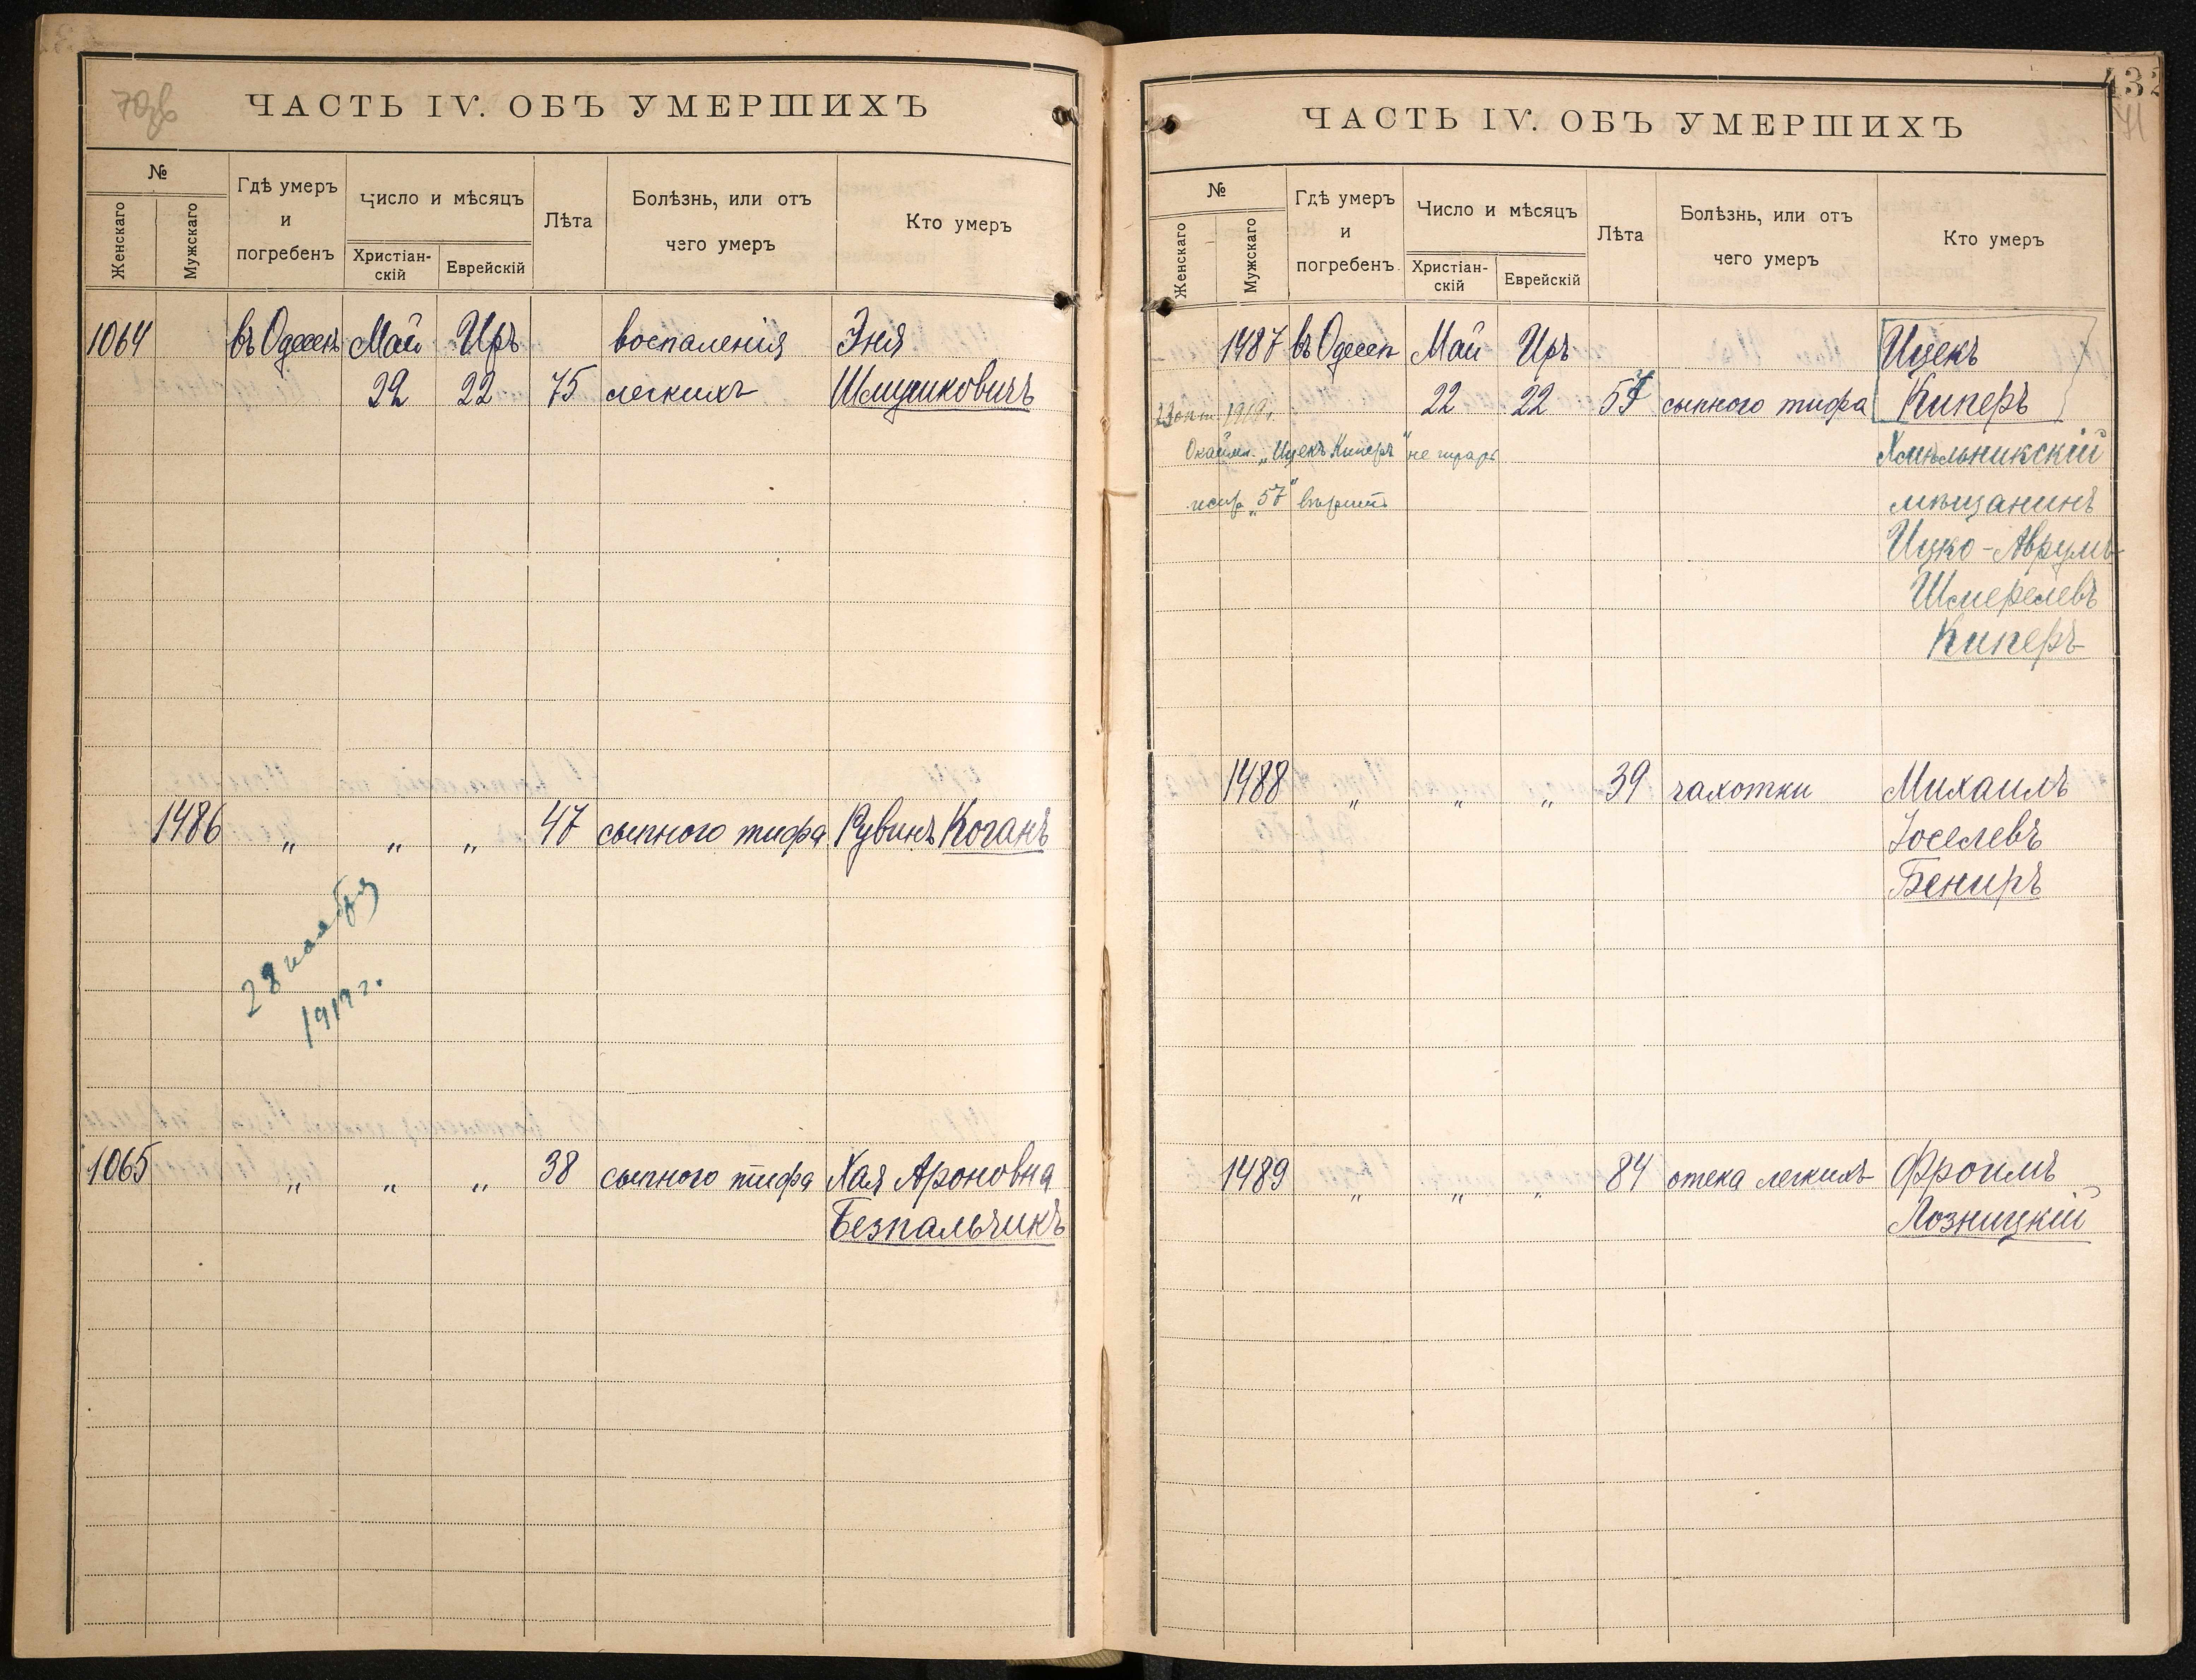 70об
ЧАСТЬ IV. ОБЪ УМЕРШИХЪ
№
Женскаго
Мужскаго
Гдѣ умеръ
и
погребенъ
Число и мѣсяцъ
Христіан-
скій
Еврейскій
Лѣта
Болѣзнь, или отъ
чего умеръ
Кто умеръ
1064 въ Одессѣ Май Иръ воспаленія Эня
22 22 75 легкихъ Шмушковичъ
1486 " " " 47 сыпного тифа Рувинъ Коганъ
28 ноября
1919 г.
1065 " " " 38 сыпного тифа Хая Ароновна
Безпальчикъ
432
71
ЧАСТЬ IV. ОБЪ УМЕРШИХЪ
№
Женскаго
Мужскаго
Гдѣ умеръ
и
погребенъ
Число и мѣсяцъ
Христіан-
скій
Еврейскій
Лѣта
Болѣзнь, или отъ
чего умеръ
Кто умеръ
1487 въ Одессѣ Май Иръ Ицекъ
22 22 57 сыпного тифа Киперъ
окт 1919 г.
„Ицекъ Киперъ“ не
Хмѣльникскій
„57“
мѣщанинъ
Ицко-Аврумъ
Шмерелевъ
Киперъ
1488 " " " 39 чахотки Михаилъ
Іоселевъ
Бениръ
1489 " " " 84 отека легкихъ Фроимъ
Лозницкій